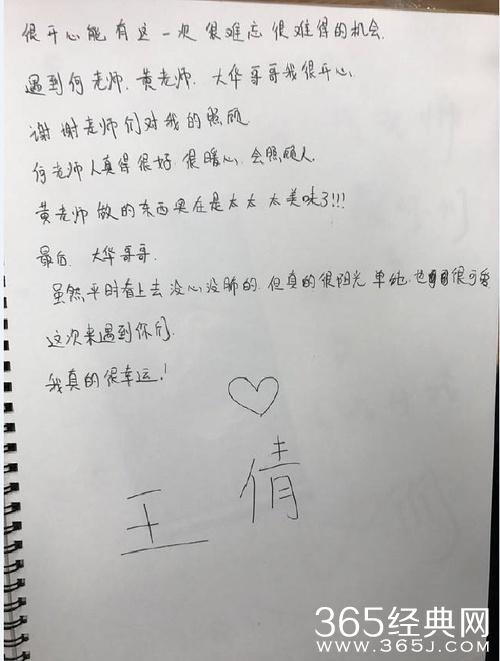 很开心能有这一次很难忘很难得的机会.
遇到何老师.黄老师.大华哥哥我很开心.
谢谢老师们对我的照顾.
何老师人真得很好.很暖心.会照顾人.
黄老师做的东西实在是太太太美味了!!!
最后.大华哥哥.
虽然平时看上去没心没肺的.但真的很阳光单纯.也很可爱
这次来遇到你们.
我真的很幸运!
王倩
365经典网
www.365j.com